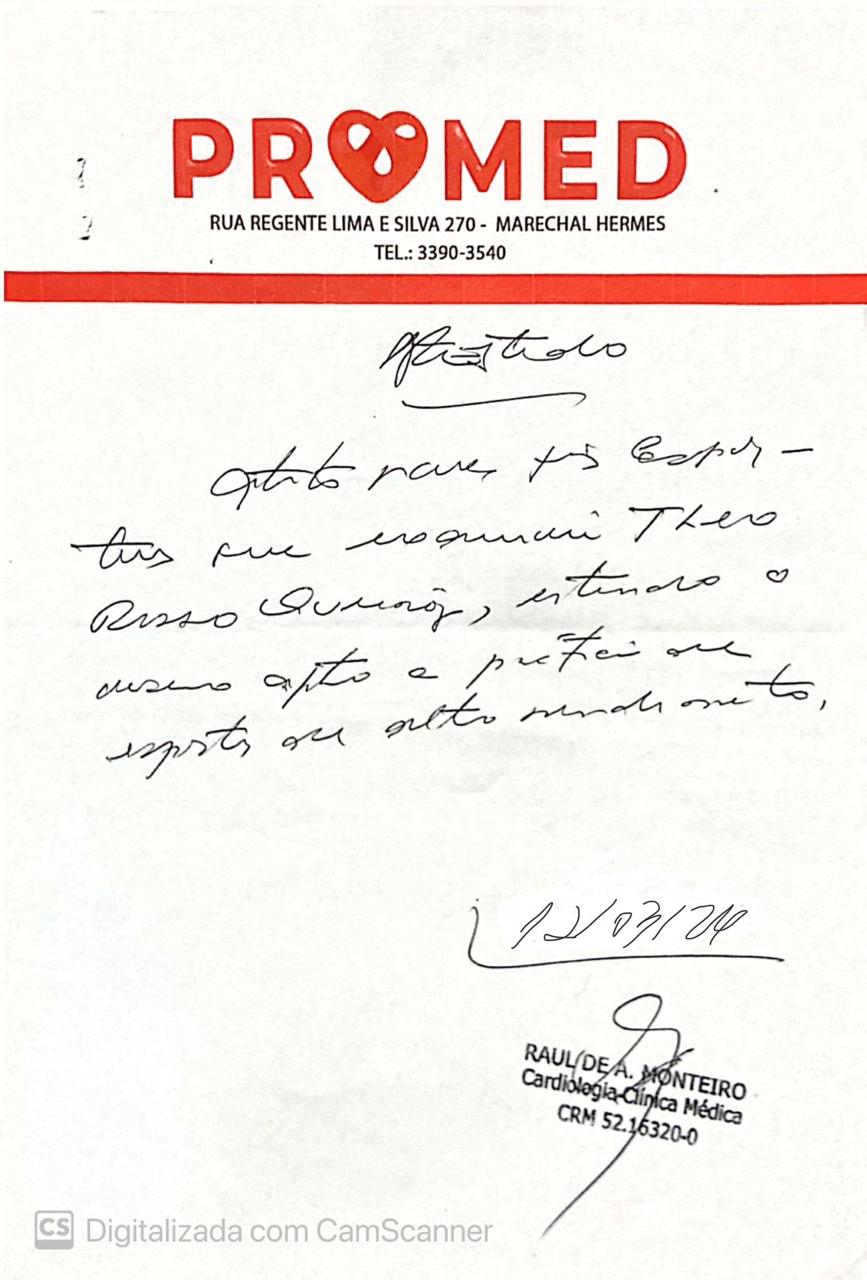 PROMED
RUA REGENTE LIMA E SILVA 270 - MARECHAL HERMES
TEL.: 3390-3540
Atestado
Atesto para fins Espor-
tivos que examinei Theo
Russo Queiroz, estando o
mesmo apto a prática de
esporte de alto rendimento.
12/03/24
RAUL DE A. MONTEIRO
Cardiologia-Clínica Médica
CRM 52.16320-0
CS Digitalizada com CamScanner